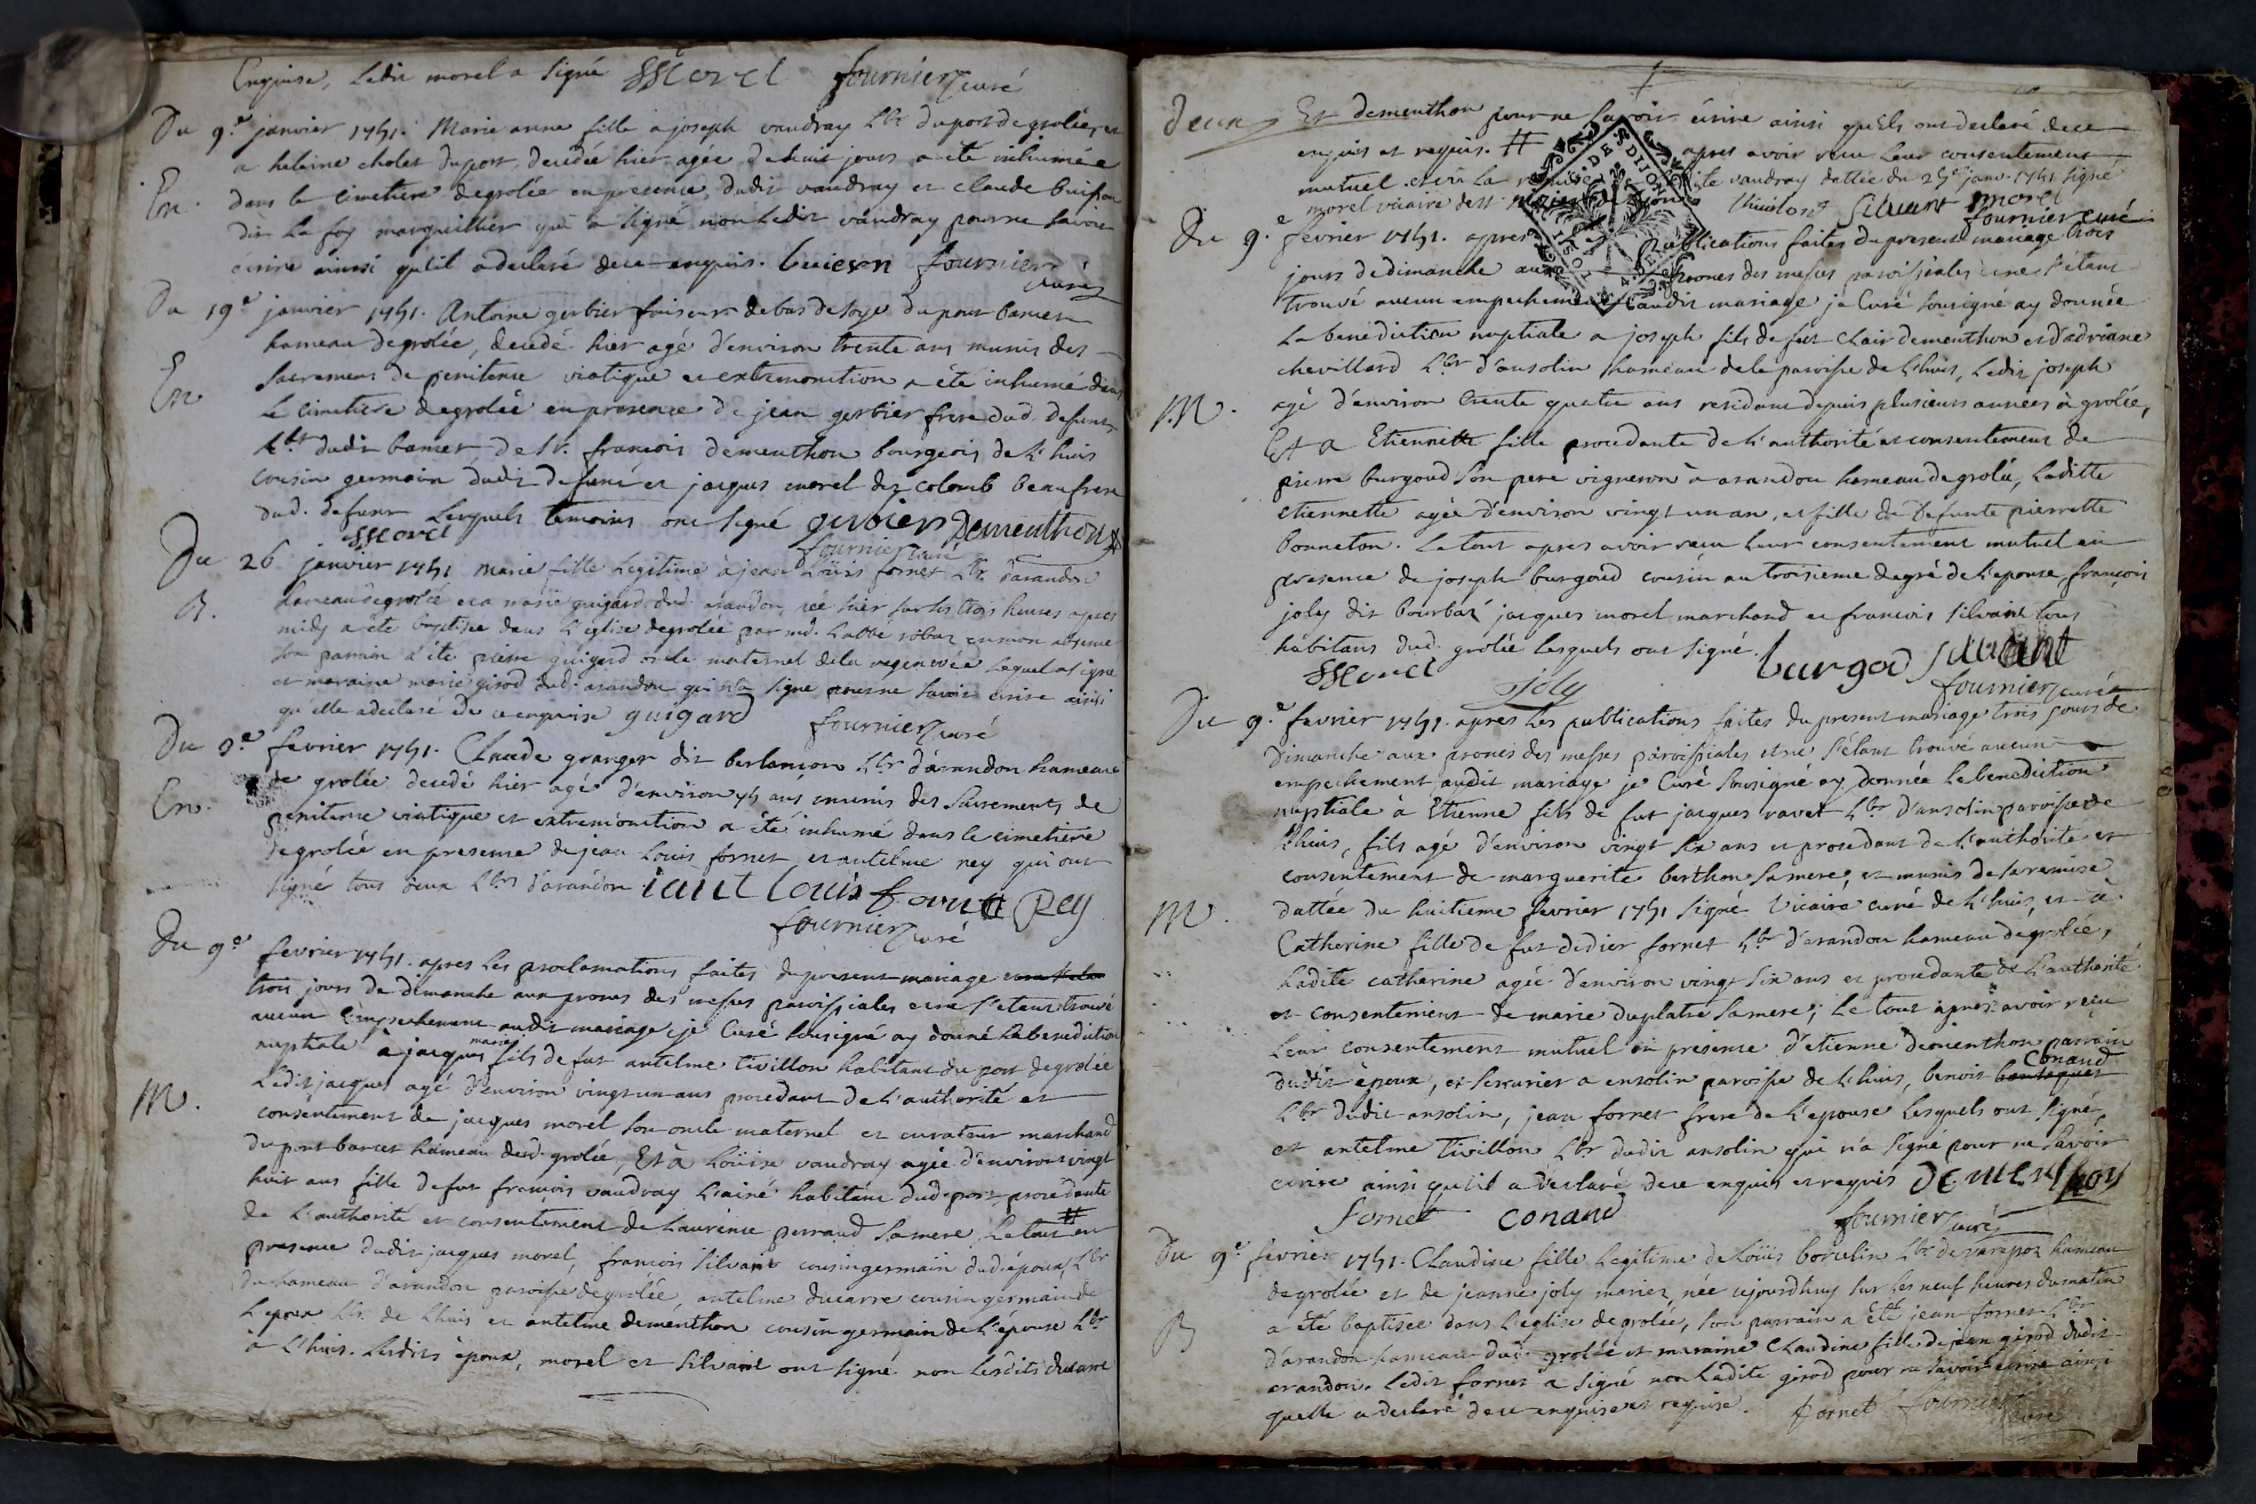 Enquise, ledit morel a signé Morel fournier curé
Du 9.e janvier 1751. Marie anne fille a joseph vaudray Lbr du port de grolée, et
a helaine cholet du port, decedée hier agée de huit jours a eté inhumée
En. dans le cimetiere de grolée en presence dudit vaudray et claude buisson
dit la foy marguillier qui a signé non ledit vaudray pour ne savoir
ecrire ainsi qu'il a declaré de ce enquis. buieson fournier
curé
Du 19e janvier 1751. Antoine gerbier faiseur de bas de soye du port
hameau de grolée, decedé hier agé d'environ trente ans munis des
En sacrements de penitence viatique et extremonction a eté inhumé dans
le cimetiere de grolée en presence de jean gerbier frere dud. defunt
Lbr dudit de Sr. françois dementhon bourgeois de l'huis
cousin germain dudit defunt et jacques morel dit colomb beaufrere
dud. defunt lesquels temoins ont signé gerbier Dementhon
Morel fournier curé
Du 26 janvier 1751 marie fille legitime à jean Loüis fornet Lbr d'arandon
B. hameau de grolée et a marie guigard dud. arandon, née hier sur les trois heures apres
midy a eté baptisée dans l'eglise de grolée par mr. l'abbé robat en mon absence
son parrain a eté pierre guigard oncle maternel de la lequel a signé
et maraine marie girod dud. arandon qui n'a signé pour ne savoir ecrire ainsi
qu'elle a declaré de ce enquise guigard fournier curé
Du 9.e fevrier 1751. Claude granger dit berlancon Lbr d'arandon hameau
de grolée decedé hier agé d'environ 75 ans munis des sacrements de
En. penitence viatique et extremonction a eté inhumé dans le cimetiere
de grolée en presence de jean Louis fornet et antelme rey qui ont
signé tous deux Lbrs d'arandon iant Louis fornet Rey
fournier curé
Du 9e fevrier 1751. apres les proclamations faites du present mariage
trois jours de dimanche aux prones des messes paroissiales et ne s'etant trouvé
aucun empechement audit mariage je Curé soussigné ay donné la benediction
nuptiale à jacques marie fils de fut antelme tivillon habitant du port de grolée
M. Ledit jacques agé d'environ vingt un ans procedant de l'authorité et
consentement de jacques morel son oncle maternel et curateur marchand
du port hameau dud. grolée, Et à Loüise vaudray agée d'environ vingt
huit ans fille de fut françois vaudray l'ainé habitant dud. port procedante
de l'authorité et consentement de Laurence perraud sa mere, Le tout # en
presence dudit jacques morel, francois silvant cousin germain dud. epoux, Lbr
du hameau d'arandon paroisse de grolée, antelme ducarre cousin germain de
L'epoux Lbr de Lhuis et antelme dementhon cousin germain de L'epouse Lbr
à L'huis. Lesdits époux, morel et silvant ont signé non lesdits ducarre
deux Et dementhon pour ne savoir écrire ainsi qu'ils ont declaré de ce
enquis et requis. # apres avoir reçu leur consentement
mutuel et vû la vaudray dattée du 25e janv. 1751 signé
morel vicaire de silvant morel
fournier curé
DES DIJON
Du 9.e fevrier 1751. apres publications faites du present mariage trois
jours de dimanche aux prones des messes paroissiales et ne s'étant
trouvé aucun empechement audit mariage je Curé sousigné ay donnée
La benediction nuptiale a joseph fils de fut Clair dementhon et d'adriane
chevillard Lbr d'ansolin hameau de la paroisse de Lhuis, Ledit joseph
M. agé d'environ trente quatre ans residant depuis plusieurs années à grolée,
Et a Etiennette fille procedante de l'authorité et consentement de
pierre burgoud son pere vigneron à arandon hameau de grolée, Laditte
etiennette agée d'environ vingt un an, et fille de defunte pierrette
bonneton. Le tout apres avoir recu leur consentement mutuel en
presence de joseph burgoud cousin au troisieme degré de l'epouse, françois
joly dit bourbaz jacques morel marchand et francois silvant tous
habitans dud. grolée lesquels ont signé. burgod silvant
Morel Joly fournier curé
Du 9.e fevrier 1751. apres les publications faites du present mariage trois jours de
Dimanche aux prones des messes paroissiales et ne s'étant trouvé aucun
empechement audit mariage je Curé sousigné ay donnée la benediction
nuptiale à Etienne fils de fut jacques ravet Lbr d'ansolin paroisse de
Lhuis, fils agé d'environ vingt six ans et procedant de l'authorité et
consentement de marguerite berthon sa mere, et munis de sa remise
M. dattée du huitieme fevrier 1751 signé Vicaire curé de L'huis, et à
Catherine fille de fut didier fornet Lbr d'arandon hameau de grolée,
Ladite catherine agée d'environ vingt six ans et procedante de l'authorité
et consentement de marie duplatre sa mere, Le tout apres avoir reçu
leur consentement mutuel en presence d'etienne dementhon parrain
dudit époux, et serrurier a ensolin paroisse de Lhuis, benoit Conand
Lbr dudit ansolin, jean fornet frere de l'epouse lesquels ont signé,
et antelme Tivillon Lbr dudit ansolin qui n'a signé pour ne savoir
ecrire ainsi qu'il a declaré de ce enquis et requis DEMENTHON
fornet conand fournier curé
Du 9.e fevrier 1751. Claudine fille legitime de Loüis Lbr de hameau
de grolée et de jeanne joly mariez née ajourdhuy sur les neuf heures du matin
B a eté baptisée dans l'eglise de grolée, son parrain a été jean fornet Lbr
d'arandon hameau dud. grolée et maraine Claudine fille de jean girod dudit
arandon. Ledit fornet a signé non ladite girod pour ne savoir ecrire ainsi
quelle a declaré de ce enquise et requise. fornet fournier
curé